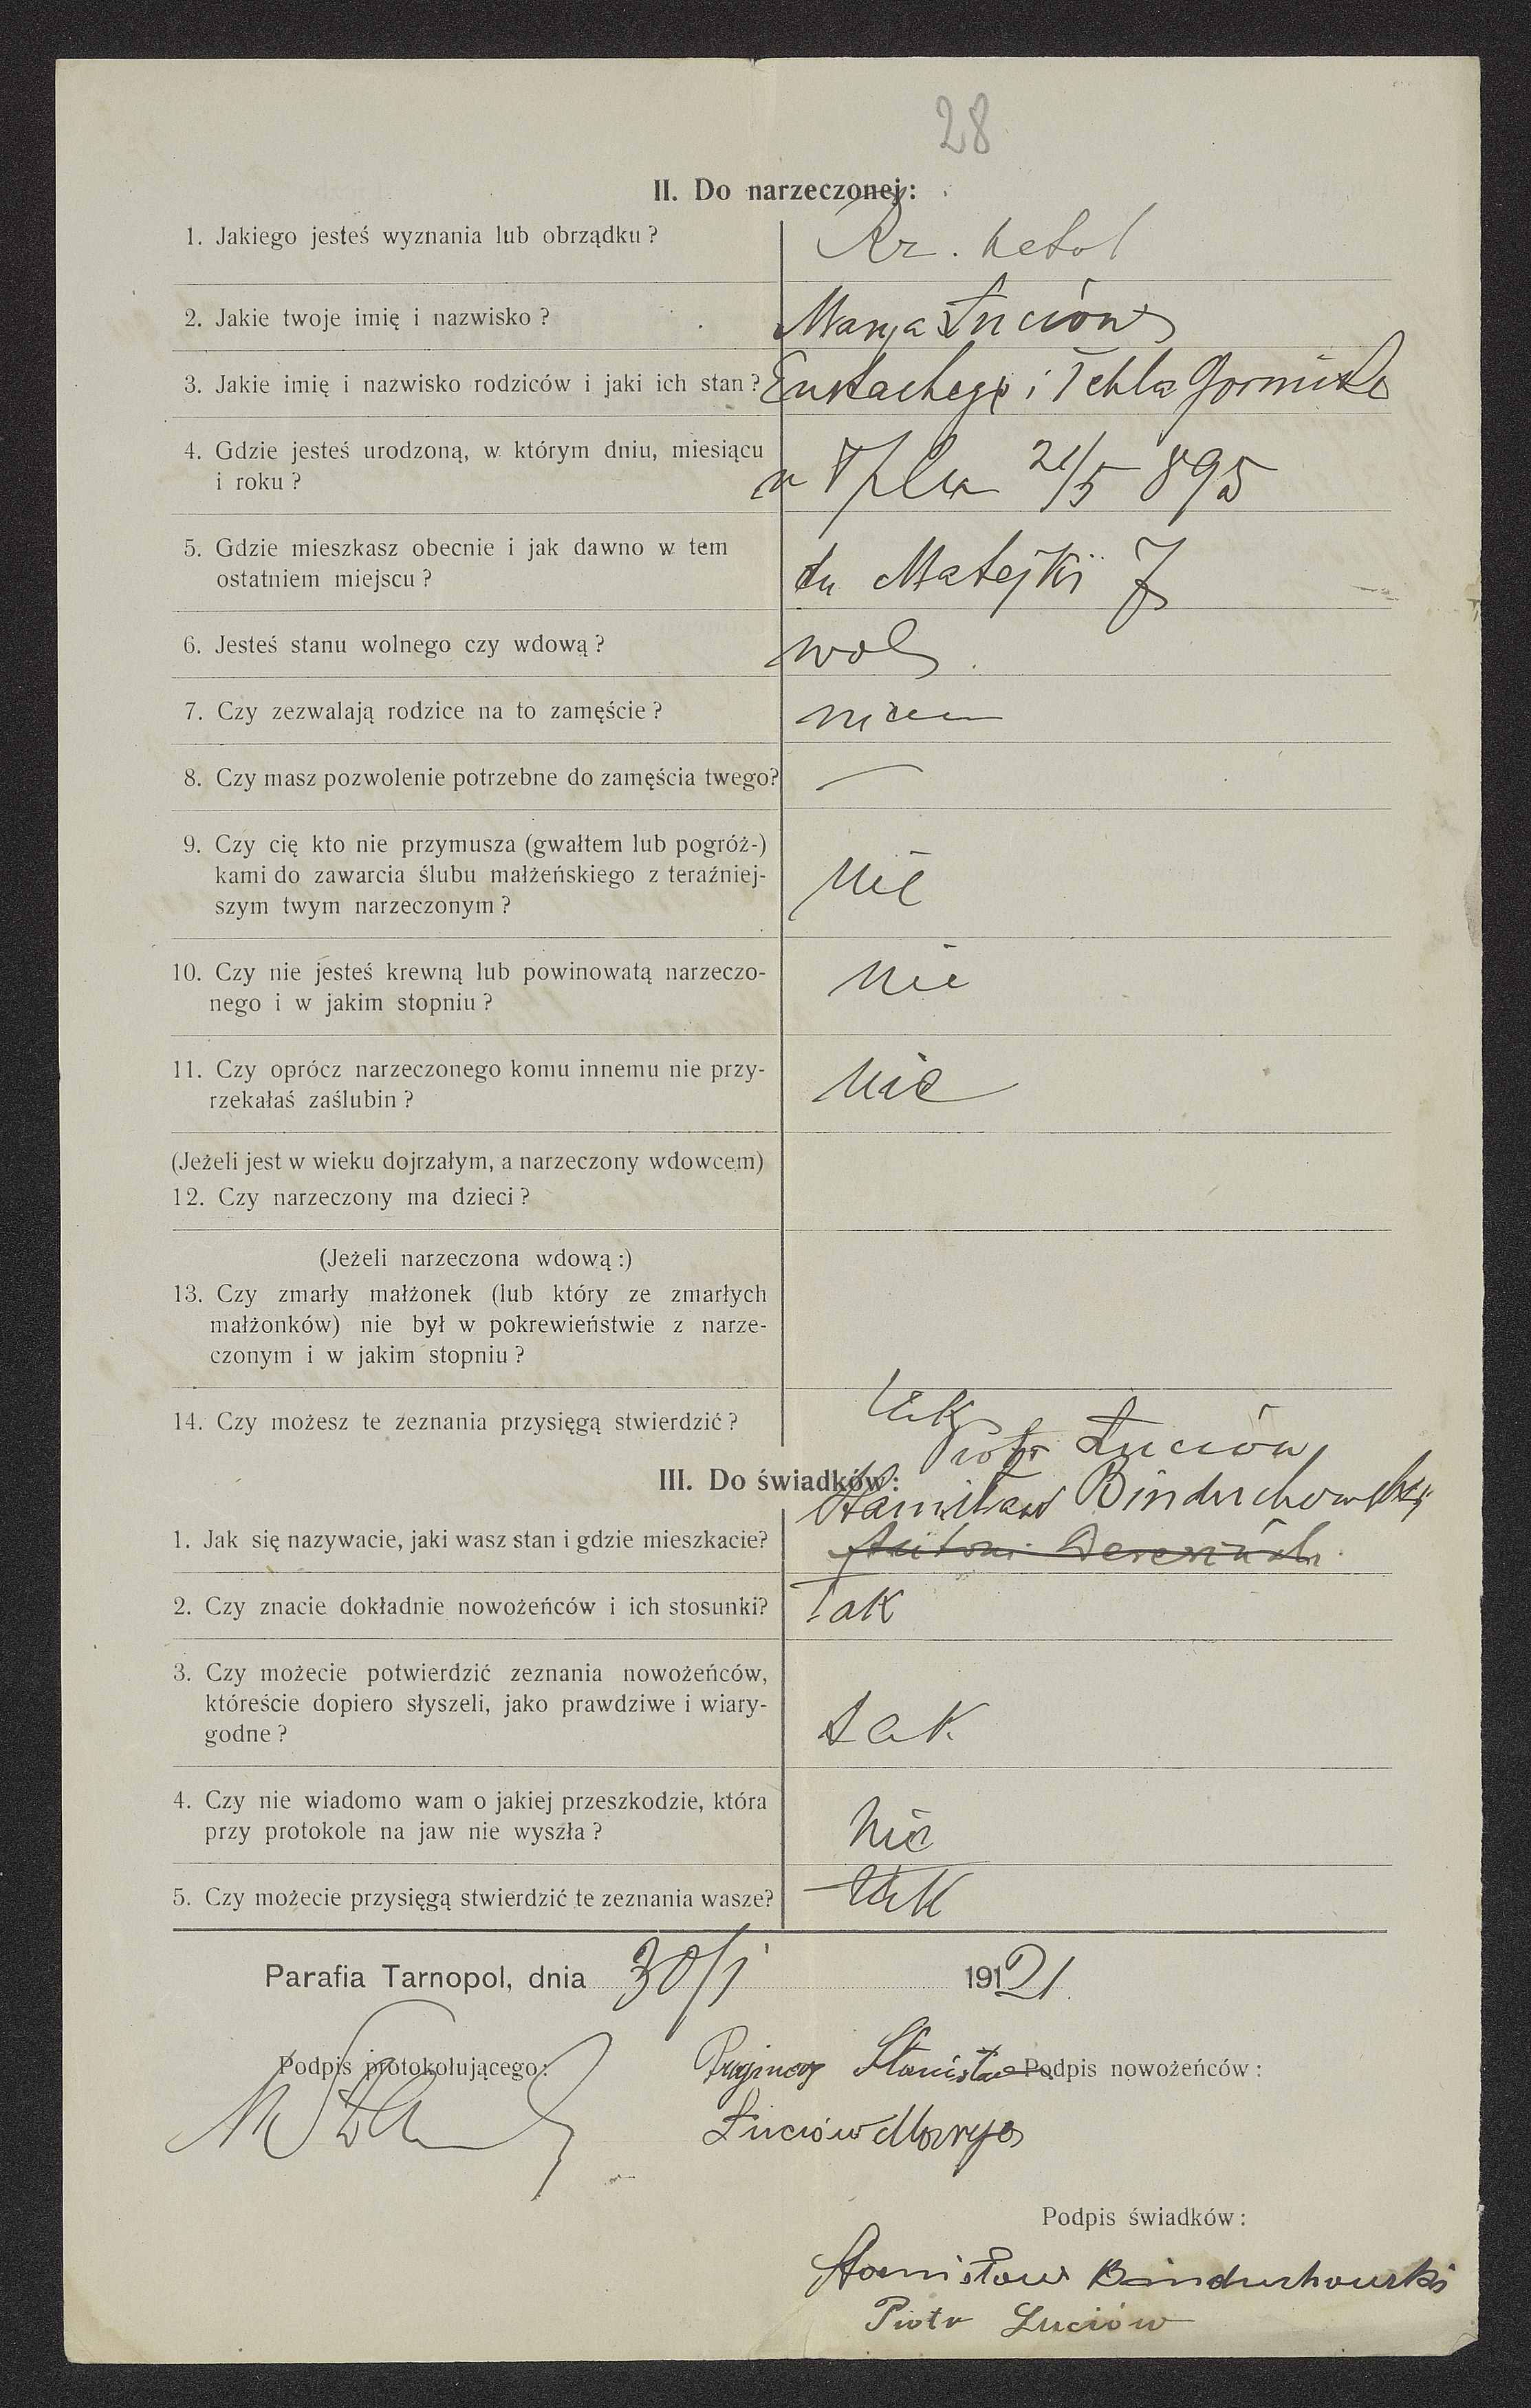 28
II. Do narzeczonej:
1. Jakiego jesteś wyznania lub obrządku?
Rz. katol
2. Jakie twoje imię i nazwisko?
Marya Łuciów
3. Jakie imię i nazwisko rodziców i jaki ich stan?
Eustachego i Tekla
4. Gdzie jesteś urodzoną, w którym dniu, miesiącu
i roku?
w Tplu 21/5 895
5. Gdzie mieszkasz obecnie i jak dawno w tem
ostatniem miejscu?
tu Matejki 7
6. Jesteś stanu wolnego czy wdową?
wol
7. Czy zezwalają rodzice na to zamęście?
8. Czy masz pozwolenie potrzebne do zamęścia twego?
—
9. Czy cię kto nie przymusza (gwałtem lub pogróż-)
kami do zawarcia ślubu małżeńskiego z teraźniej-
szym twym narzeczonym?
nie
10. Czy nie jesteś krewną lub powinowatą narzeczo-
nego i w jakim stopniu?
nie
11. Czy oprócz narzeczonego komu innemu nie przy-
rzekałaś zaślubin?
nie
(Jeżeli jest w wieku dojrzałym, a narzeczony wdowcem)
12. Czy narzeczony ma dzieci?
(Jeżeli narzeczona wdową:)
13. Czy zmarły małżonek (lub który ze zmarłych
małżonków) nie był w pokrewieństwie z narze-
czonym i w jakim stopniu?
14. Czy możesz te zeznania przysięgą stwierdzić?
tak
Piotr Łuciów
III. Do świadków:
Stanisław Binduchowski
1. Jak się nazywacie, jaki wasz stan i gdzie mieszkacie?
Antoni
2. Czy znacie dokładnie nowożeńców i ich stosunki?
Tak
3. Czy możecie potwierdzić zeznania nowożeńców,
któreście dopiero słyszeli, jako prawdziwe i wiary-
godne?
tak
4. Czy nie wiadomo wam o jakiej przeszkodzie, która
przy protokole na jaw nie wyszła?
nie
5. Czy możecie przysięgą stwierdzić te zeznania wasze?
tak
Parafia Tarnopol, dnia 30/1 19121
Podpis protokołującego:
Stanisław
Podpis nowożeńców:
Łuciów Marya
Podpis świadków:
Stanisław Binduchowski
Piotr Łuciów